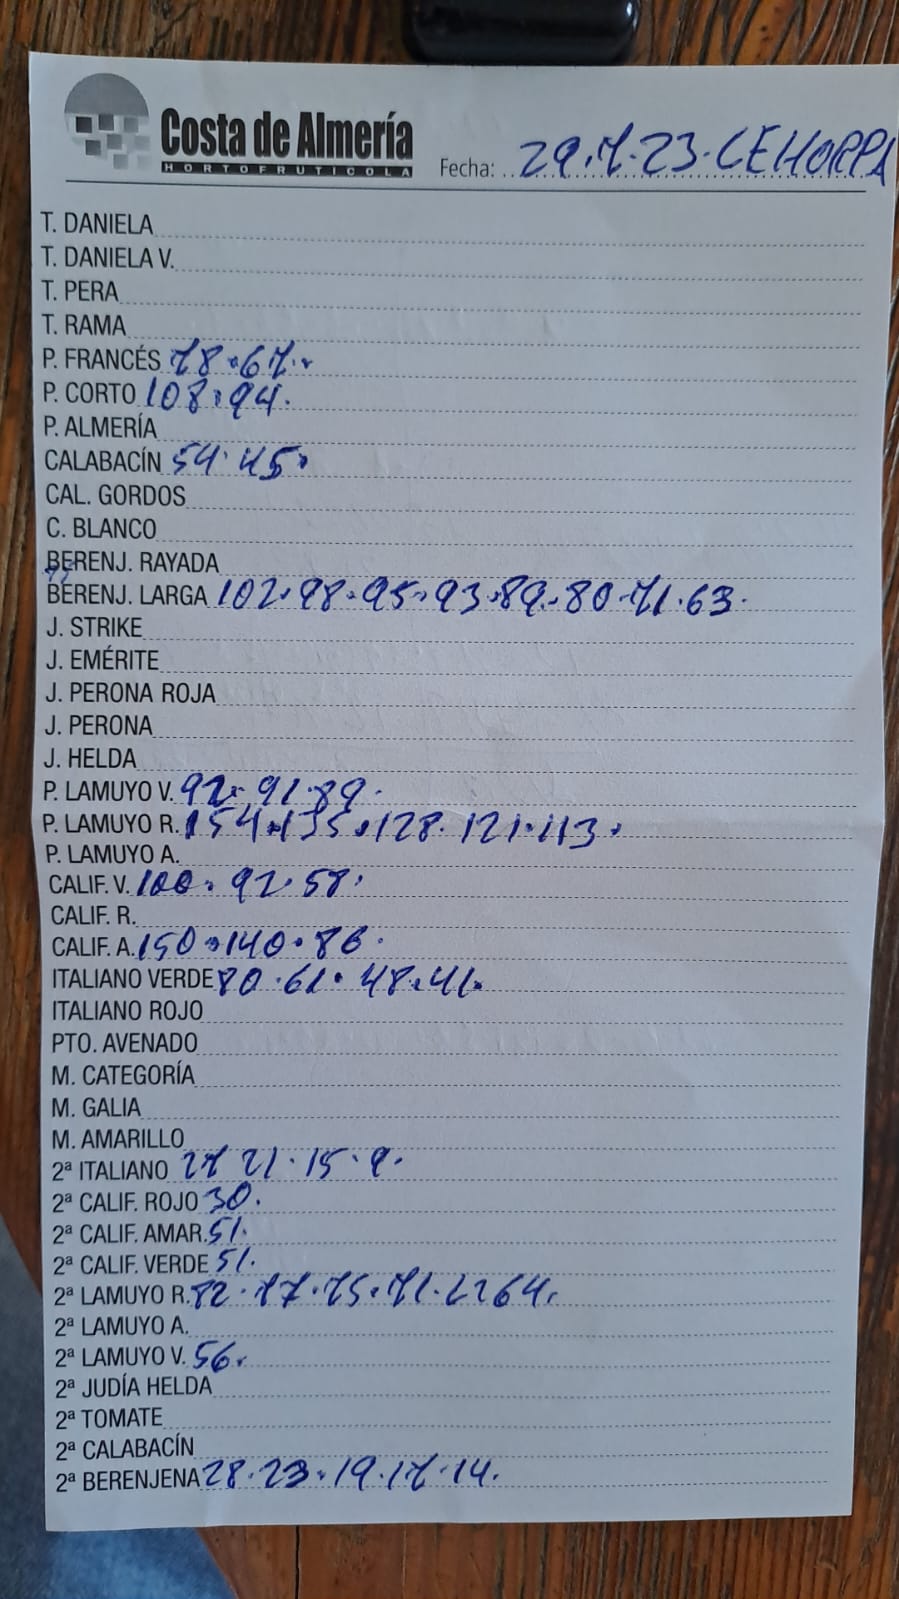 Costa de Almería
HORTOFRUTICOLA
Fecha: 29.7.23. CEHORPA
T. DANIELA
T. DANIELA V.
T. PERA
T. RAMA
P. FRANCÉS 78.67.
P. CORTO 108.94.
P. ALMERÍA
CALABACÍN 54.45.
CAL. GORDOS
C. BLANCO
BERENJ. RAYADA
BERENJ. LARGA 102.98.95.93.89.80.71.63.
J. STRIKE
J. EMÉRITE
J. PERONA ROJA
J. PERONA
J. HELDA
P. LAMUYO V. 92.91.89.
P. LAMUYO R. 154.135.128.121.113.
P. LAMUYO A.
CALIF. V. 100.92.58.
CALIF. R.
CALIF. A. 150.140.86.
ITALIANO VERDE 80.61.48.41.
ITALIANO ROJO
PTO. AVENADO
M. CATEGORÍA
M. GALIA
M. AMARILLO
2ª ITALIANO 27 21.15.9.
2ª CALIF. ROJO 30.
2ª CALIF. AMAR. 51.
2ª CALIF. VERDE 51.
2ª LAMUYO R. 82.77.75.71. 64.
2ª LAMUYO A.
2ª LAMUYO V. 56.
2ª JUDÍA HELDA
2ª TOMATE
2ª CALABACÍN
2ª BERENJENA 28.23.19.17.14.